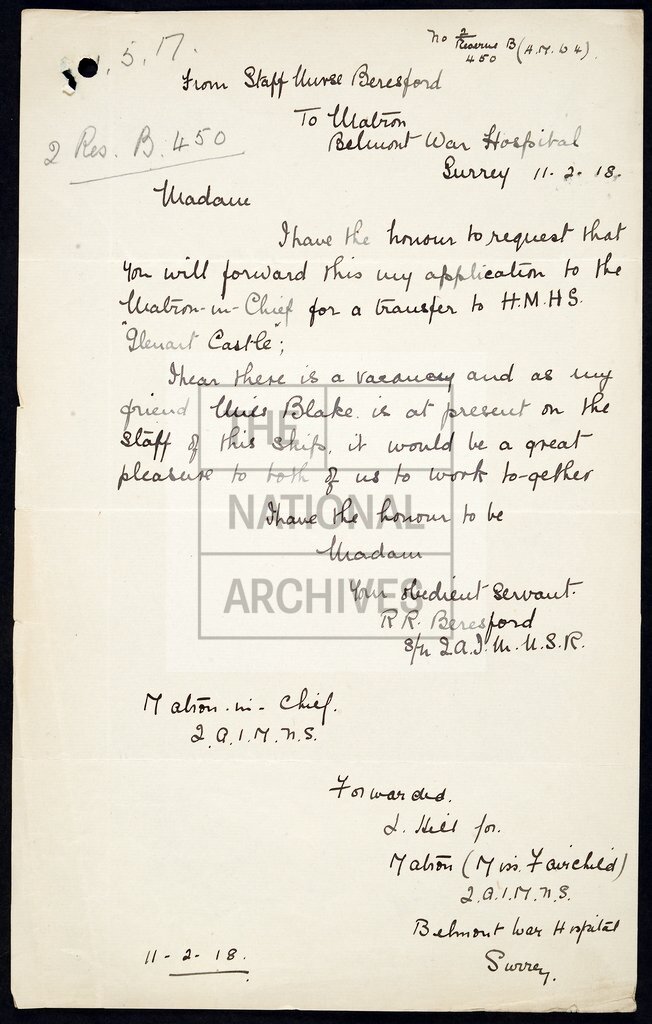 No 2/Reserve B/450 (A.M.D 4).
5. 17.
From Staff Nurse Beresford
To Matron
2 Res. B. 450
Belmont War Hospital
Surrey 11-2-18.
Madam
I have the honour to request that
you will forward this my application to the
Matron-in-Chief for a transfer to H.M.H.S.
"Glenart Castle";
I hear there is a vacancy and as my
friend Miss Blake is at present on the
staff of this ship, it would be a great
pleasure to both of us to work to-gether
I have the honour to be
Madam
Your obedient servant.
R R. Beresford
S/N Q.A.I.M.N.S.R.
THE
NATIONAL
ARCHIVES
Matron-in-Chief.
Q.A.I.M.N.S.
Forwarded.
L. Hill for.
Matron (Miss Fairchild)
Q.A.I.M.N.S.
Belmont War Hospital
11-2-18.
Surrey.